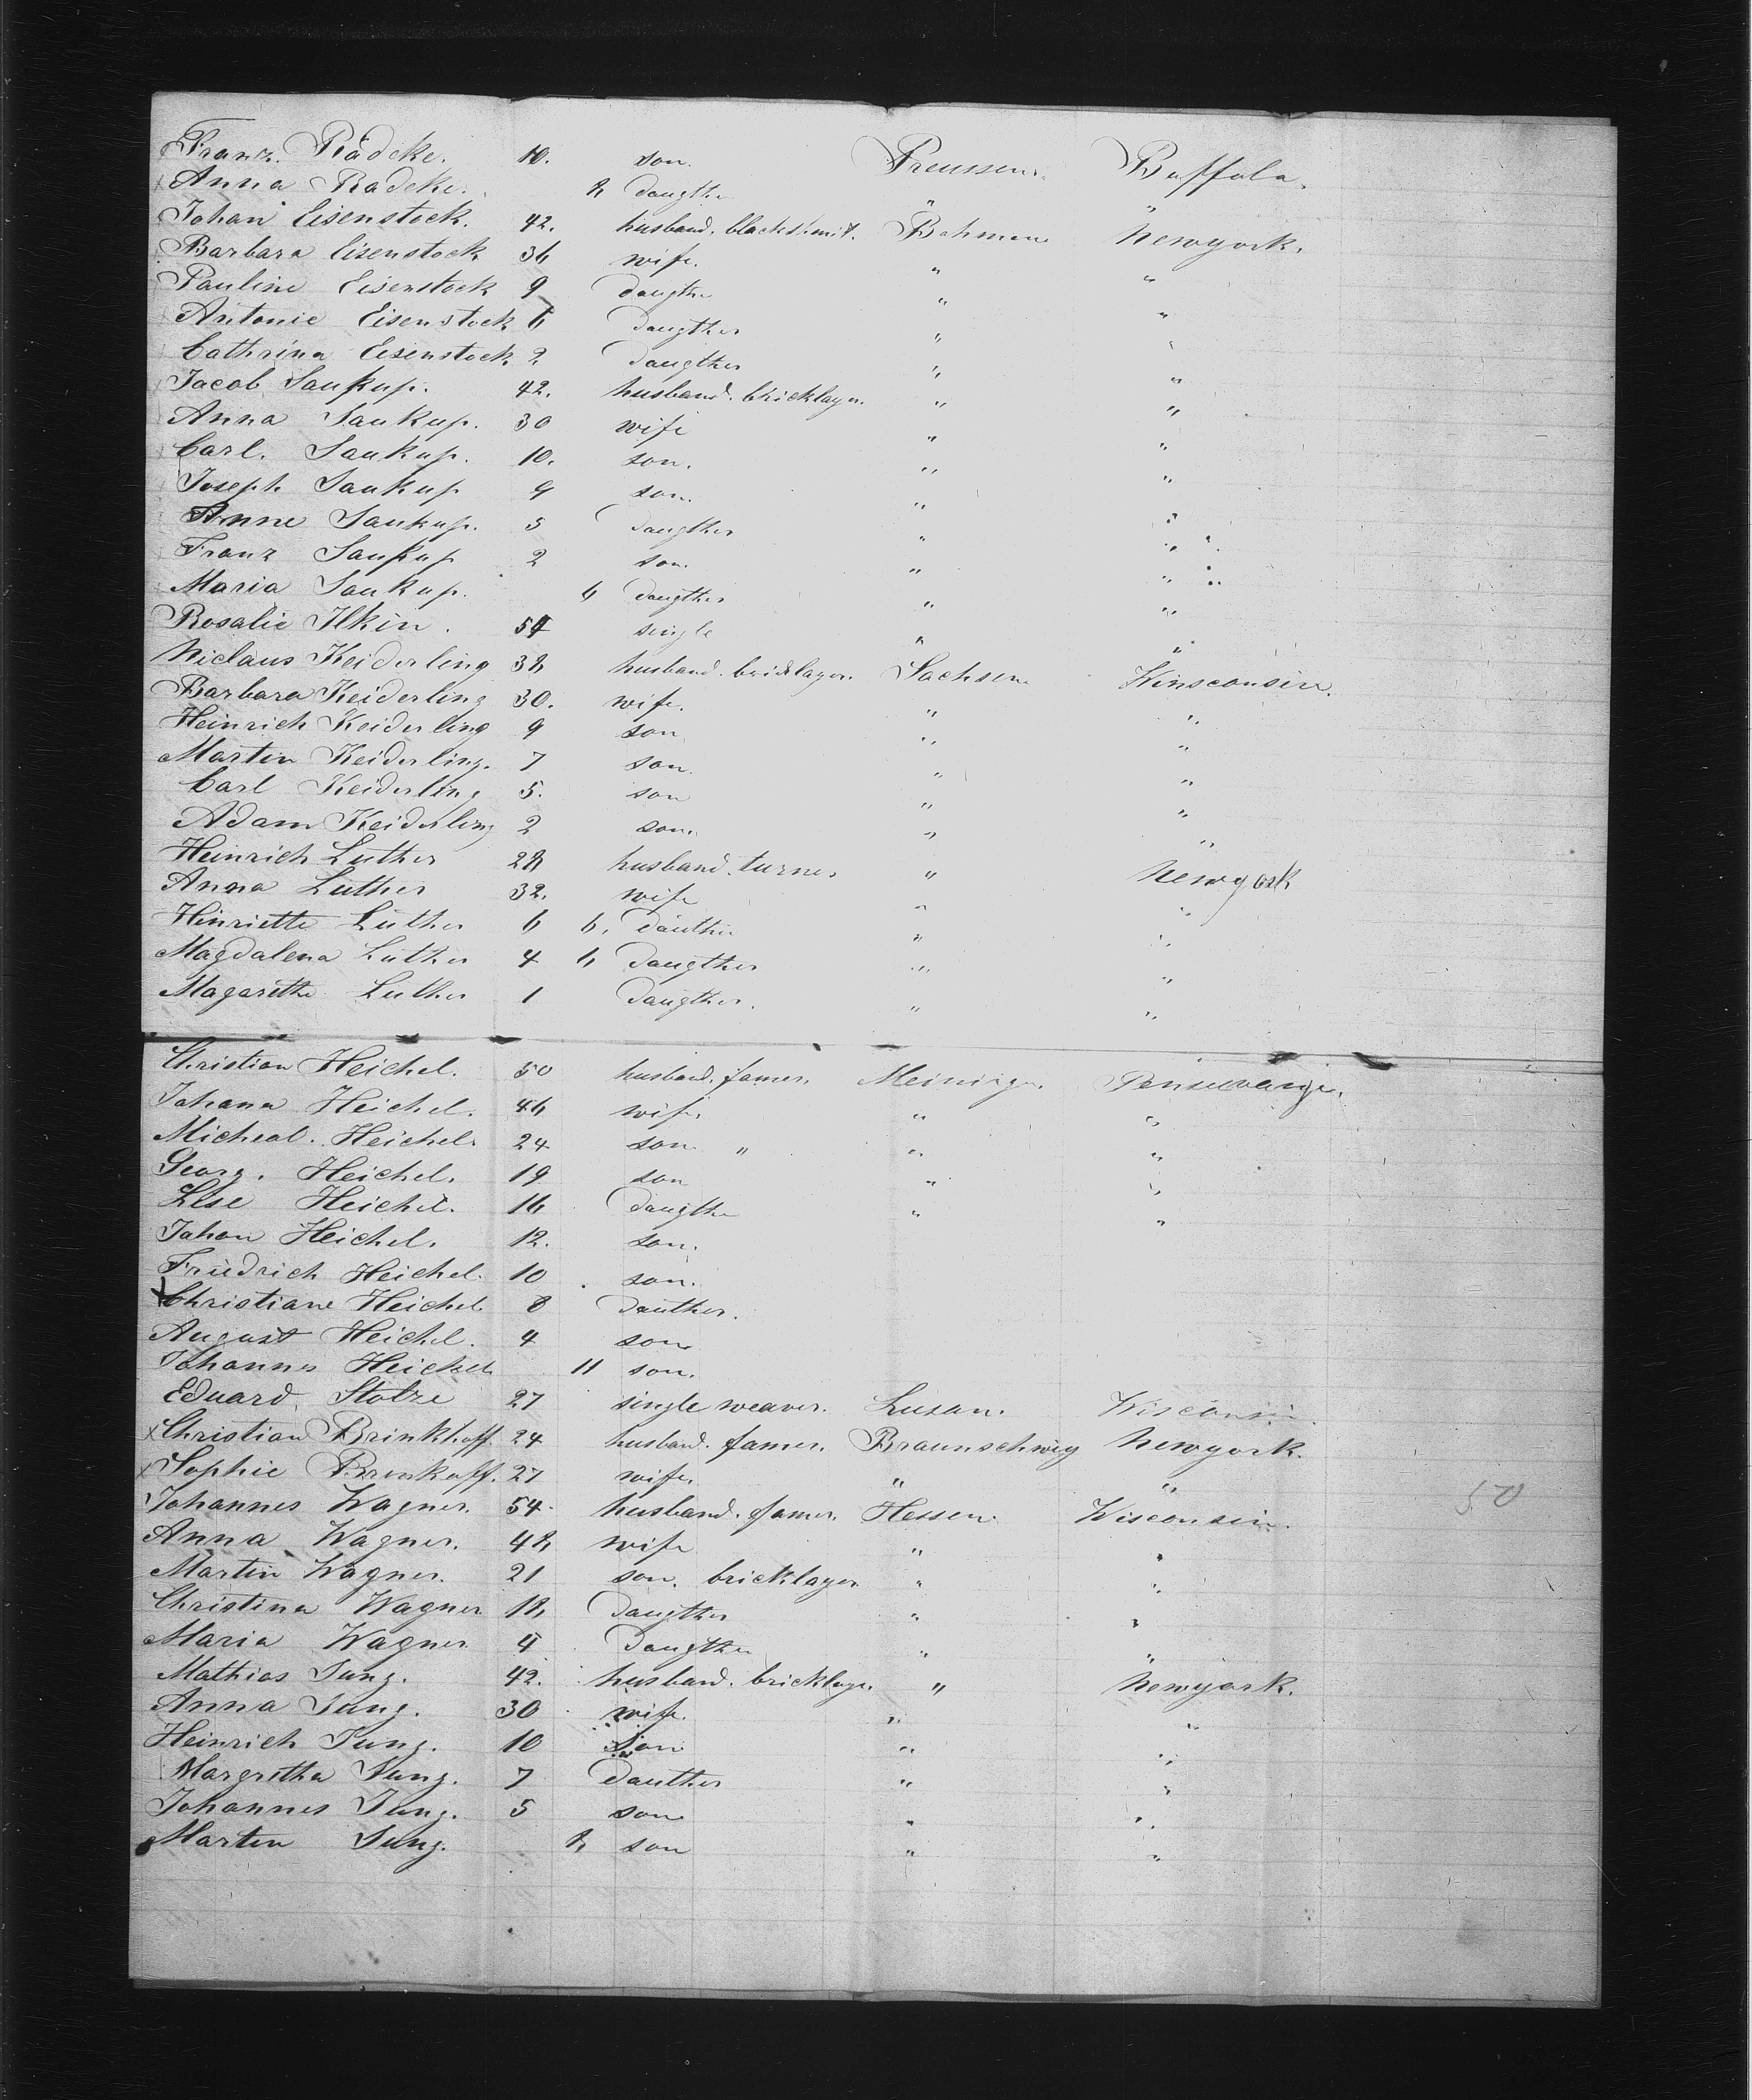 Franz. Rädeke. 10. son. Preussen. Buffala.
Anna Radeke. 8 daugthe " "
Johan Eisenstock. 42. husband. blackshmit. Bohmen Newyork.
Barbara Eisenstock 36 wife. " "
Pauline Eisenstock 9 daugthe " "
Antonie Eisenstock 6 Daugther " "
Cathrina Eisenstock 2 Daugther " "
Jacob Saukup. 42. husband. bricklayer. " "
Anna Saukup. 30 wife " "
Carl. Saukup. 10. son. " "
Joseph Saukup 9 son. " "
Anne Saukup. 5 Daugther " "
Franz Saukup 2 son. " "
Maria Saukup. 6 Daugther " "
Rosalie Ilkin. 54 single " "
Niclaus Keiderling 38 husband. bricklayer. Sachsen Winsconsin.
Barbara Keiderling 30. wife. " "
Heinrich Keiderling 9 son " "
Martin Keiderling. 7 son. " "
Carl Keiderling 5. son " "
Adam Keiderling 2 son. " "
Heinrich Luther 28 husband. turner " Newyork
Anna Luther 32. wife " "
Hinriette Luther 6 6. Dauther " "
Magdalena Luther 4 6 Daugther " "
Magarethe Luther 1 Daugther. " "
Christian Heichel. 50 husband. famer. Meininge. Penselvanje.
Johana Heichel. 46 wife. " "
Micheal. Heichel. 24 son " " "
Georg. Heichel. 19 son " "
Else Heichel. 16 Daugthe " "
Johan Heichel. 12. son.
Friedrich Heichel. 10 son.
Christiane Heichel. 8 Dauther.
August Heichel. 4 son
Johannes Heichel 11 son.
Eduard. Stolze 27 single weaver. Luzan. Wisconsin.
Christian Brinkhoff. 24 husband. famer. Braunschweig Newyork.
Sophie Brinkoff. 27 wife. " "
Johannes Wagner. 54. husband. famer. Hessen. Wisconsin.
Anna Wagner. 48 wife " "
Martin Wagner. 21 son. bricklayer " "
Christina Wagner 18 Daugther " "
Maria Wagner 4 Daugther " "
Mathias Jung. 42. husband. bricklayer " Newyork.
Anna Jung. 30 wife. " "
Heinrich Jung. 10 Son " "
Margretha Jung. 7 Dauther " "
Johannes Jung. 5 son " "
Marten Jung. 8 son " "
50